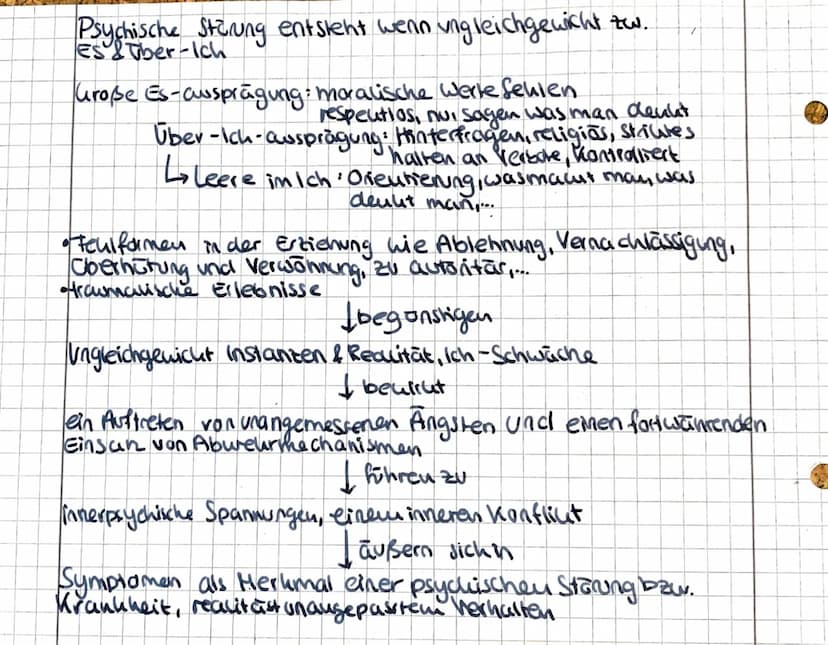 Psychische Störung entsteht wenn ungleichgewicht zw.
ES & Über-Ich
Große Es-ausprägung: moralische Werte fehlen
respektlos, nur sagen was man denkt
Über-Ich-ausprägung: Hinterfragen, religiös, striktes
halten an Verbote, Kontrolliert
↳ Leere im Ich: Orientierung, was macht man, was
denkt man,...
• Fehlformen in der Erziehung wie Ablehnung, Vernachlässigung,
Überhütung und Verwöhnung, zu autoritär,...
• traumatische Erlebnisse
↓ begünstigen
Ungleichgewicht Instanzen & Realität, Ich-Schwäche
↓ bewirkt
ein Auftreten von unangemessenen Ängsten und einen fortwährenden
Einsatz von Abwehrmechanismen
↓ führen zu
innerpsychische Spannungen, einem inneren Konflikt
↓ äußern sich in
Symptomen als Merkmal einer psychischen Störung bzw.
Krankheit, realitätsunangepasstem Verhalten